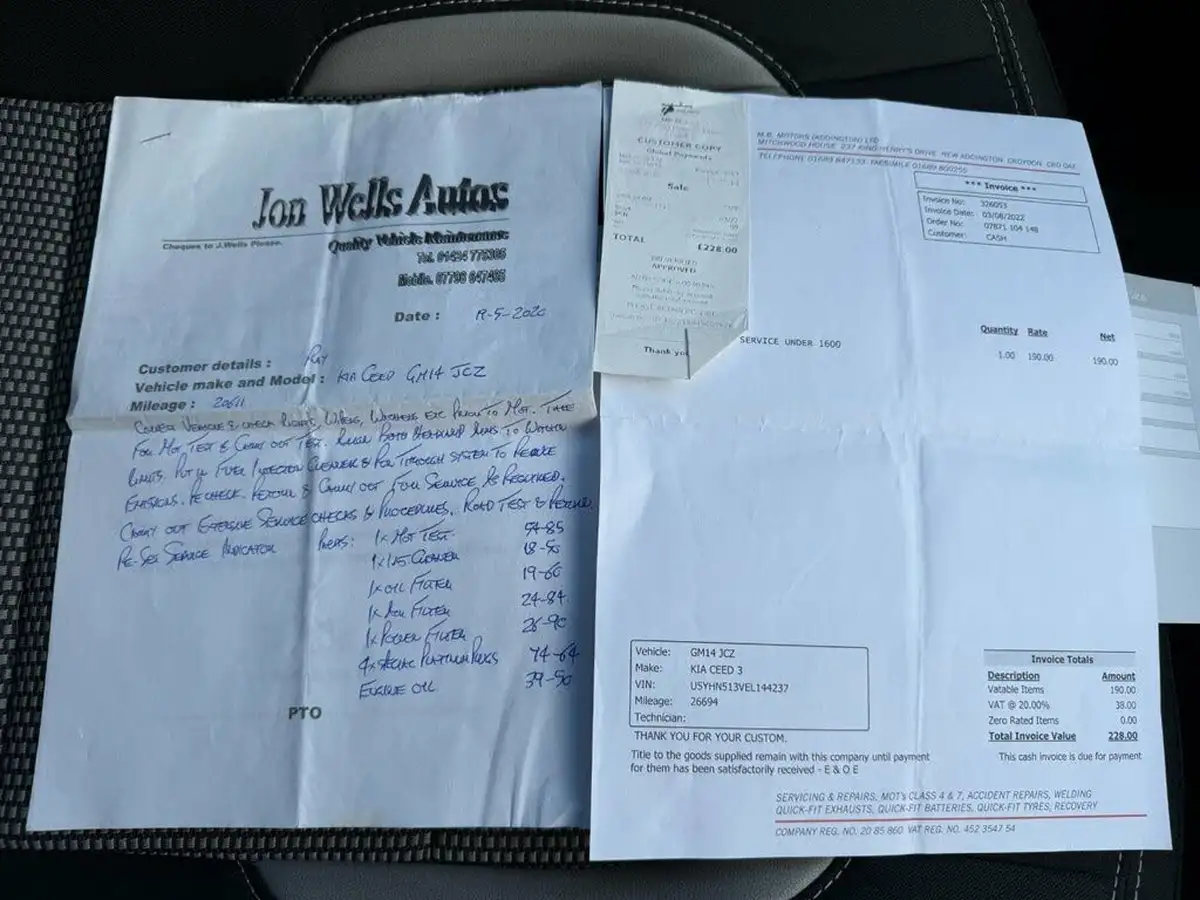 Jon Wells Autos
Cheques to J.Wells Please.
Quality Vehicle Maintenance
Tel. 01494 775385
Mobile. 07798 647485
Date :
Customer details : Ray
Vehicle make and Model : KIA CEED GM14 JCZ
Mileage : 20611
COLLECT VEHICLE & CHECK LIGHTS, WIPERS, WASHERS ETC PRIOR TO MOT. TAKE
FOR MOT TEST & CARRY OUT TEST. BOTH HEADLAMP AIMS TO WITHIN
LIMITS. PUT IN FUEL INJECTION CLEANER & RUN THROUGH SYSTEM TO REDUCE
EMISSIONS. RE CHECK. RETURN & CARRY OUT FULL SERVICE AS REQUIRED.
CARRY OUT EXTENSIVE SERVICE CHECKS & PROCEDURES. ROAD TEST & RETURN.
RE-SET SERVICE INDICATOR PARTS: 1X MOT TEST. 54-85
1X INJ CLEANER 18-50
1X OIL FILTER 19-60
1X AIR FILTER 24-84
1X POLLEN FILTER 26-90
4X SPECIAL PLATINUM PLUGS 74-64
ENGINE OIL 39-50
PTO
CUSTOMER COPY
Global Payments
Sale
TOTAL £228.00
PIN VERIFIED
APPROVED
Thank you
M.B. MOTORS (ADDINGTON) LTD
MITCHWOOD HOUSE 237 KING HENRY'S DRIVE NEW ADDINGTON CROYDON CR0 0AE
TELEPHONE 01689 847133 FACSIMILE 01689 800255
*** Invoice ***
Invoice No: 326053
Invoice Date: 03/08/2022
Order No: 07871 104 148
Customer: CASH
Quantity Rate Net
SERVICE UNDER 1600 1.00 190.00 190.00
Vehicle: GM14 JCZ
Make: KIA CEED 3
VIN: U5YHN513VEL144237
Mileage: 26694
Technician:
Invoice Totals
Description Amount
Vatable Items 190.00
VAT @ 20.00% 38.00
Zero Rated Items 0.00
Total Invoice Value 228.00
THANK YOU FOR YOUR CUSTOM.
Title to the goods supplied remain with this company until payment
for them has been satisfactorily received - E & O E
This cash invoice is due for payment
SERVICING & REPAIRS, MOT's CLASS 4 & 7, ACCIDENT REPAIRS, WELDING
QUICK-FIT EXHAUSTS, QUICK-FIT BATTERIES, QUICK-FIT TYRES, RECOVERY
COMPANY REG. NO. 20 85 860 VAT REG. NO. 452 3547 54